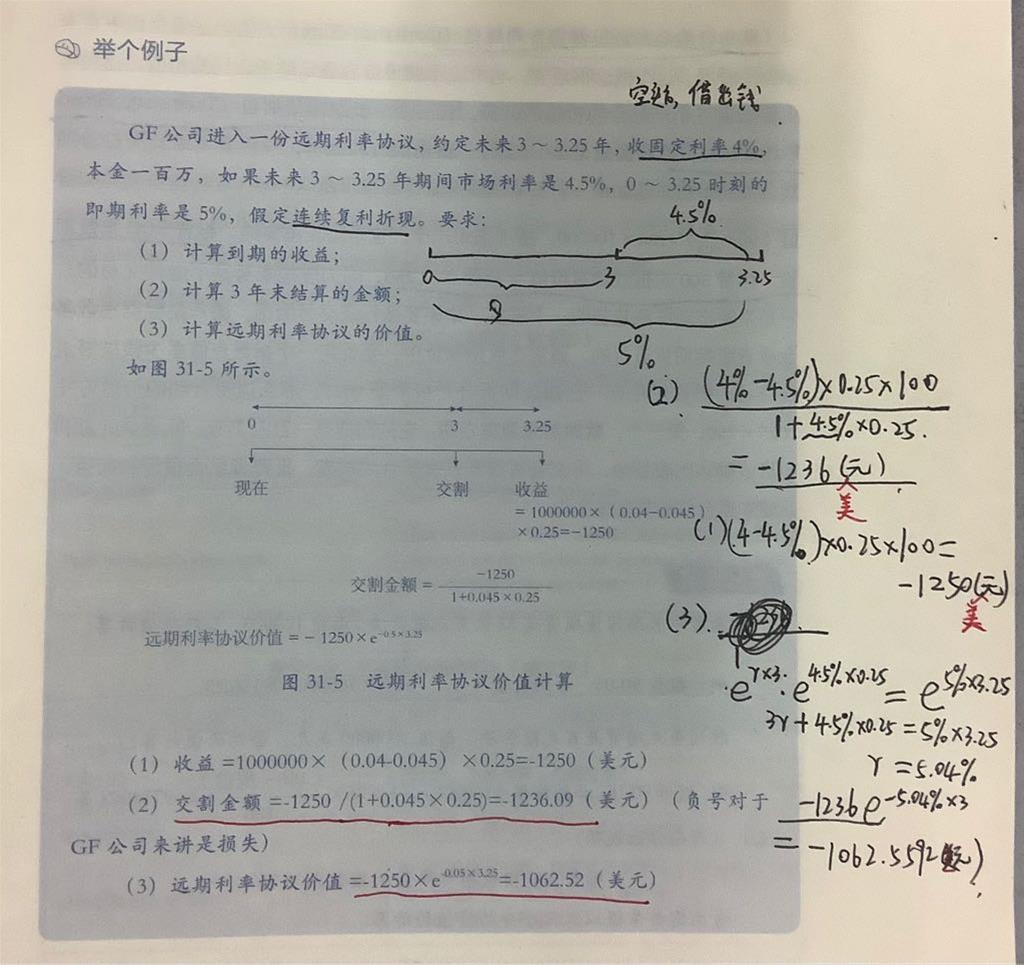 举个例子
空头,借出钱
GF 公司进入一份远期利率协议,约定未来3~3.25年,收固定利率4%,
本金一百万,如果未来3~3.25年期间市场利率是4.5%,0~3.25时刻的
即期利率是5%,假定连续复利折现。要求:
4.5%
(1)计算到期的收益;
0 3 3.25
(2)计算3年末结算的金额;
(3)计算远期利率协议的价值。
5%
如图 31-5 所示。
0 3 3.25
现在 交割 收益
=1000000×(0.04-0.045)
×0.25=-1250
交割金额= -1250 / 1+0.045×0.25
远期利率协议价值=-1250×e^-0.5×3.25
图 31-5 远期利率协议价值计算
(1)收益=1000000×(0.04-0.045)×0.25=-1250(美元)
(2)交割金额=-1250 /(1+0.045×0.25)=-1236.09(美元)(负号对于
GF 公司来讲是损失)
(3)远期利率协议价值=-1250×e^-0.05×3.25=-1062.52(美元)
(2). (4%-4.5%)×0.25×100
1+4.5%×0.25.
=-1236(元)
美
(1)(4-4.5%)×0.25×100=
-1250(元)
美
(3).
e^r×3 · e^4.5%×0.25 = e^5%×3.25
3r+4.5%×0.25=5%×3.25
r=5.04%
-1236e^-5.04%×3
=-1062.5592